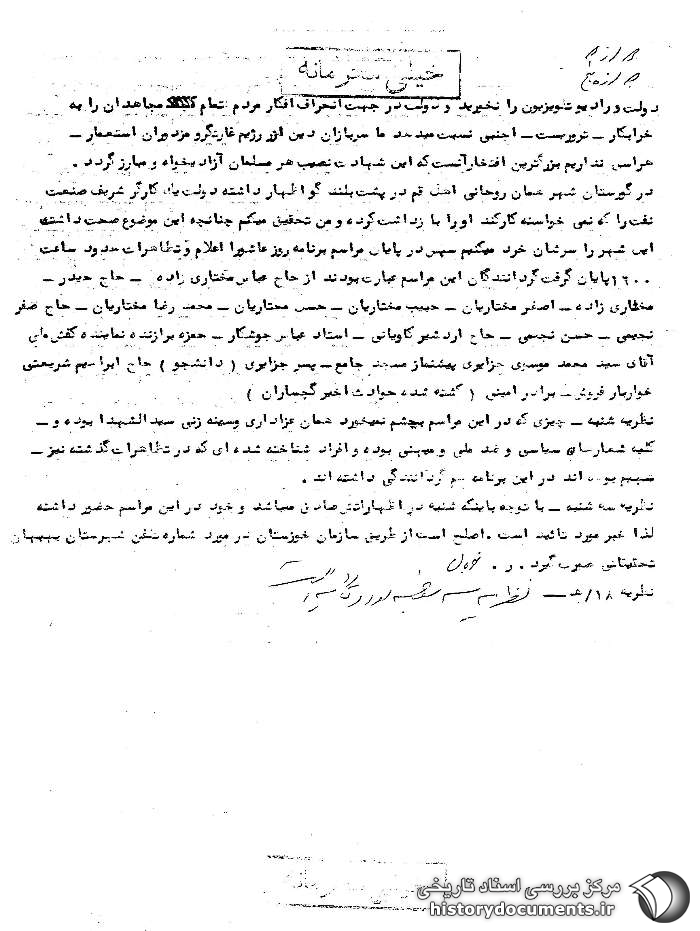 خیلی محرمانه
دولت و رادیو تلویزیون را نخورید و دولت در جهت انحراف افکار مردم تمام مجاهدان را به
خرابکار ــ تروریست ــ اجنبی نسبت میدهد ما سربازان دین از رژیم غارتگر و مزدوران استعمار ــ
هراسی نداریم بزرگترین افتخار آنست که این شهادت نصیب هر مسلمان آزادیخواه و مبارز گردد .
در گورستان شهر همان روحانی اهل قم در پشت بلند گو اظهار داشته دولت یک کارگر شریف صنعت
نفت را که نمی خواسته کار کند او را بازداشت کرده و من تحقیق میکنم چنانچه این موضوع صحت داشته
این شهر را سرشان خرد میکنیم سپس در پایان مراسم برنامه روز عاشورا اعلام و تظاهرات حدود ساعت
۱۶۰۰ پایان گرفت گردانندگان این مراسم عبارت بودند از حاج عباس مختاری زاده ــ حاج حیدر ــ
مختاری زاده ــ اصغر مختاریان ــ حبیب مختاریان ــ حسن مختاریان ــ محمد رضا مختاریان ــ حاج صفر
نجیمی ــ حسن نجیمی ــ حاج اردشیر کاویانی ــ استاد عباس جوشکار ــ حمزه برازنده نماینده کفش ملی
آقای سید محمد موسوی جزایری پیشنماز مسجد جامع ــ پسر جزایری ( دانشجو ) حاج ابراهیم شریعتی
خواربار فروش ــ برادر امینی ( کشته شده حوادث اخیر گچساران )
نظریه شنبه ــ چیزی که در این مراسم بچشم نمیخورد همان عزاداری و سینه زنی سیدالشهدا بوده و ــ
کلیه شعارهای سیاسی و ضد ملی و میهنی بوده و افراد شناخته شده ای که در تظاهرات گذشته نیز ــ
سهیم بوده اند در این برنامه هم گردانندگی داشته اند .
نظریه سه شنبه ــ با توجه باینکه شنبه در اظهاراتش صادق میباشد و خود در این مراسم حضور داشته
لذا خبر مورد تائید است . اصلح است از طریق سازمان خوزستان در مورد شماره تلفن شهرستان بهبهان
تحقیقاتی صورت گیرد . و .
نظریه ۱۸/هـ ــ نظریه سه شنبه مورد تائید است
مرکز بررسی اسناد تاریخی
historydocuments.ir